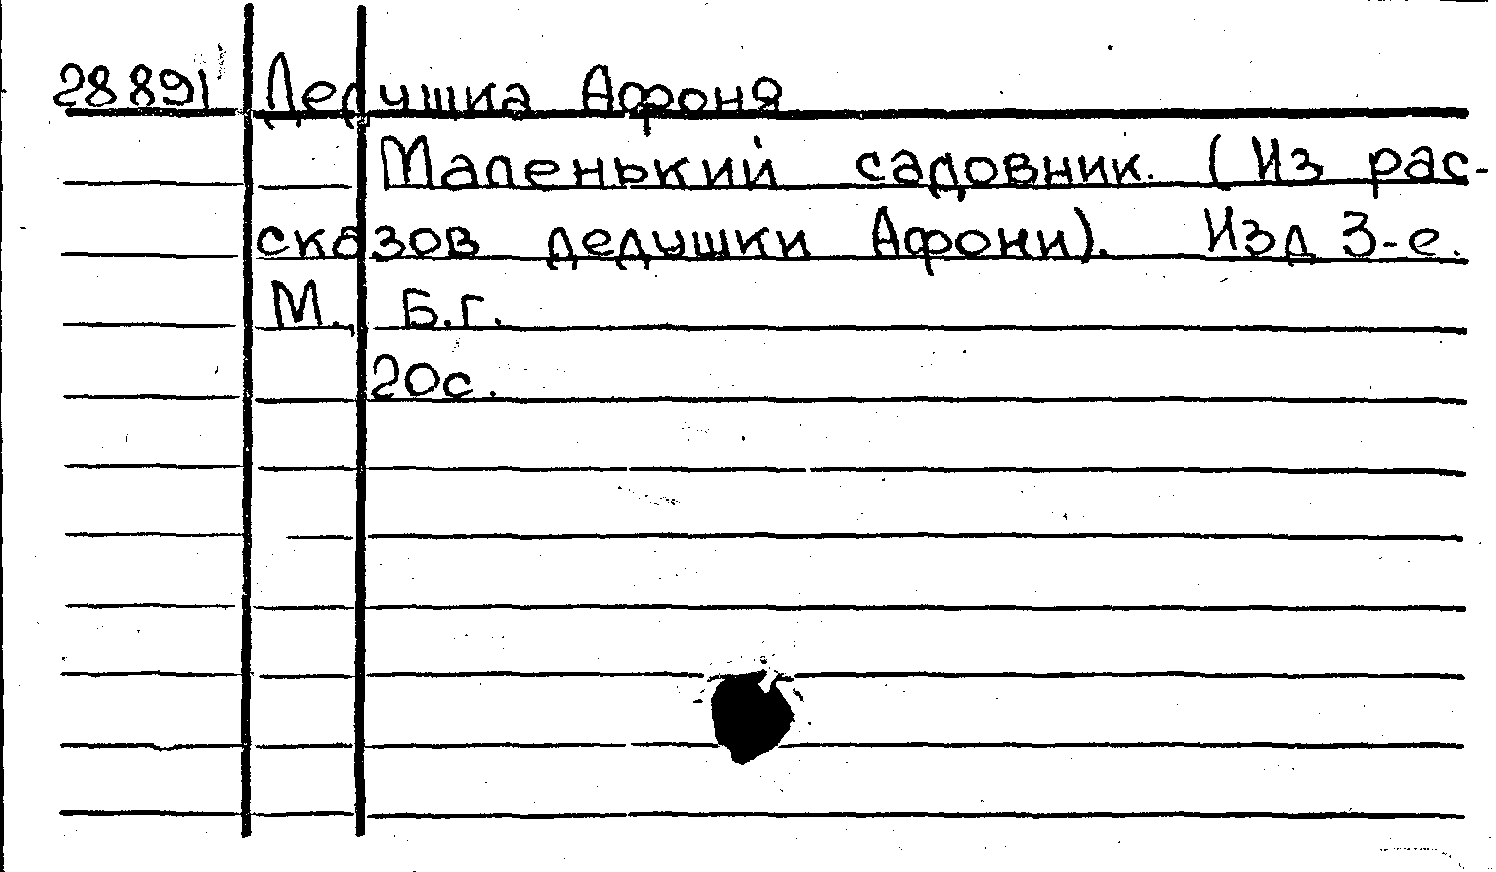 28891 Дедушка Афоня
Маленький садовник. (Из рас-
сказов дедушки Афони). Изд 3-е.
М., Б.г.
20с.